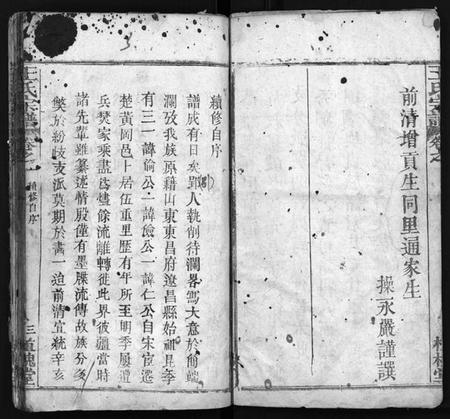 王氏宗譜
卷之一
前清增貢生同里通家生
操永嚴謹譔
槐堂
續修自序
譜成有日矣
人執削待瀾畧寫大意於簡端
瀾攷我族原籍山東東昌府遼昌縣始祖昆季
有三一諱俞公一諱儉公一諱仁公自宋宦遷
楚黃岡邑上居伍重里歷有年所至明季屢遭
兵焚家乘盡為燼餘流離轉徙此界彼疆當時
諸先輩雖纂述情殷僅有墨牒流傳故族分
繁於紛枝支派莫期於畫一迨前清宣統辛亥
王氏宗譜
卷之一
續修自序
三槐堂